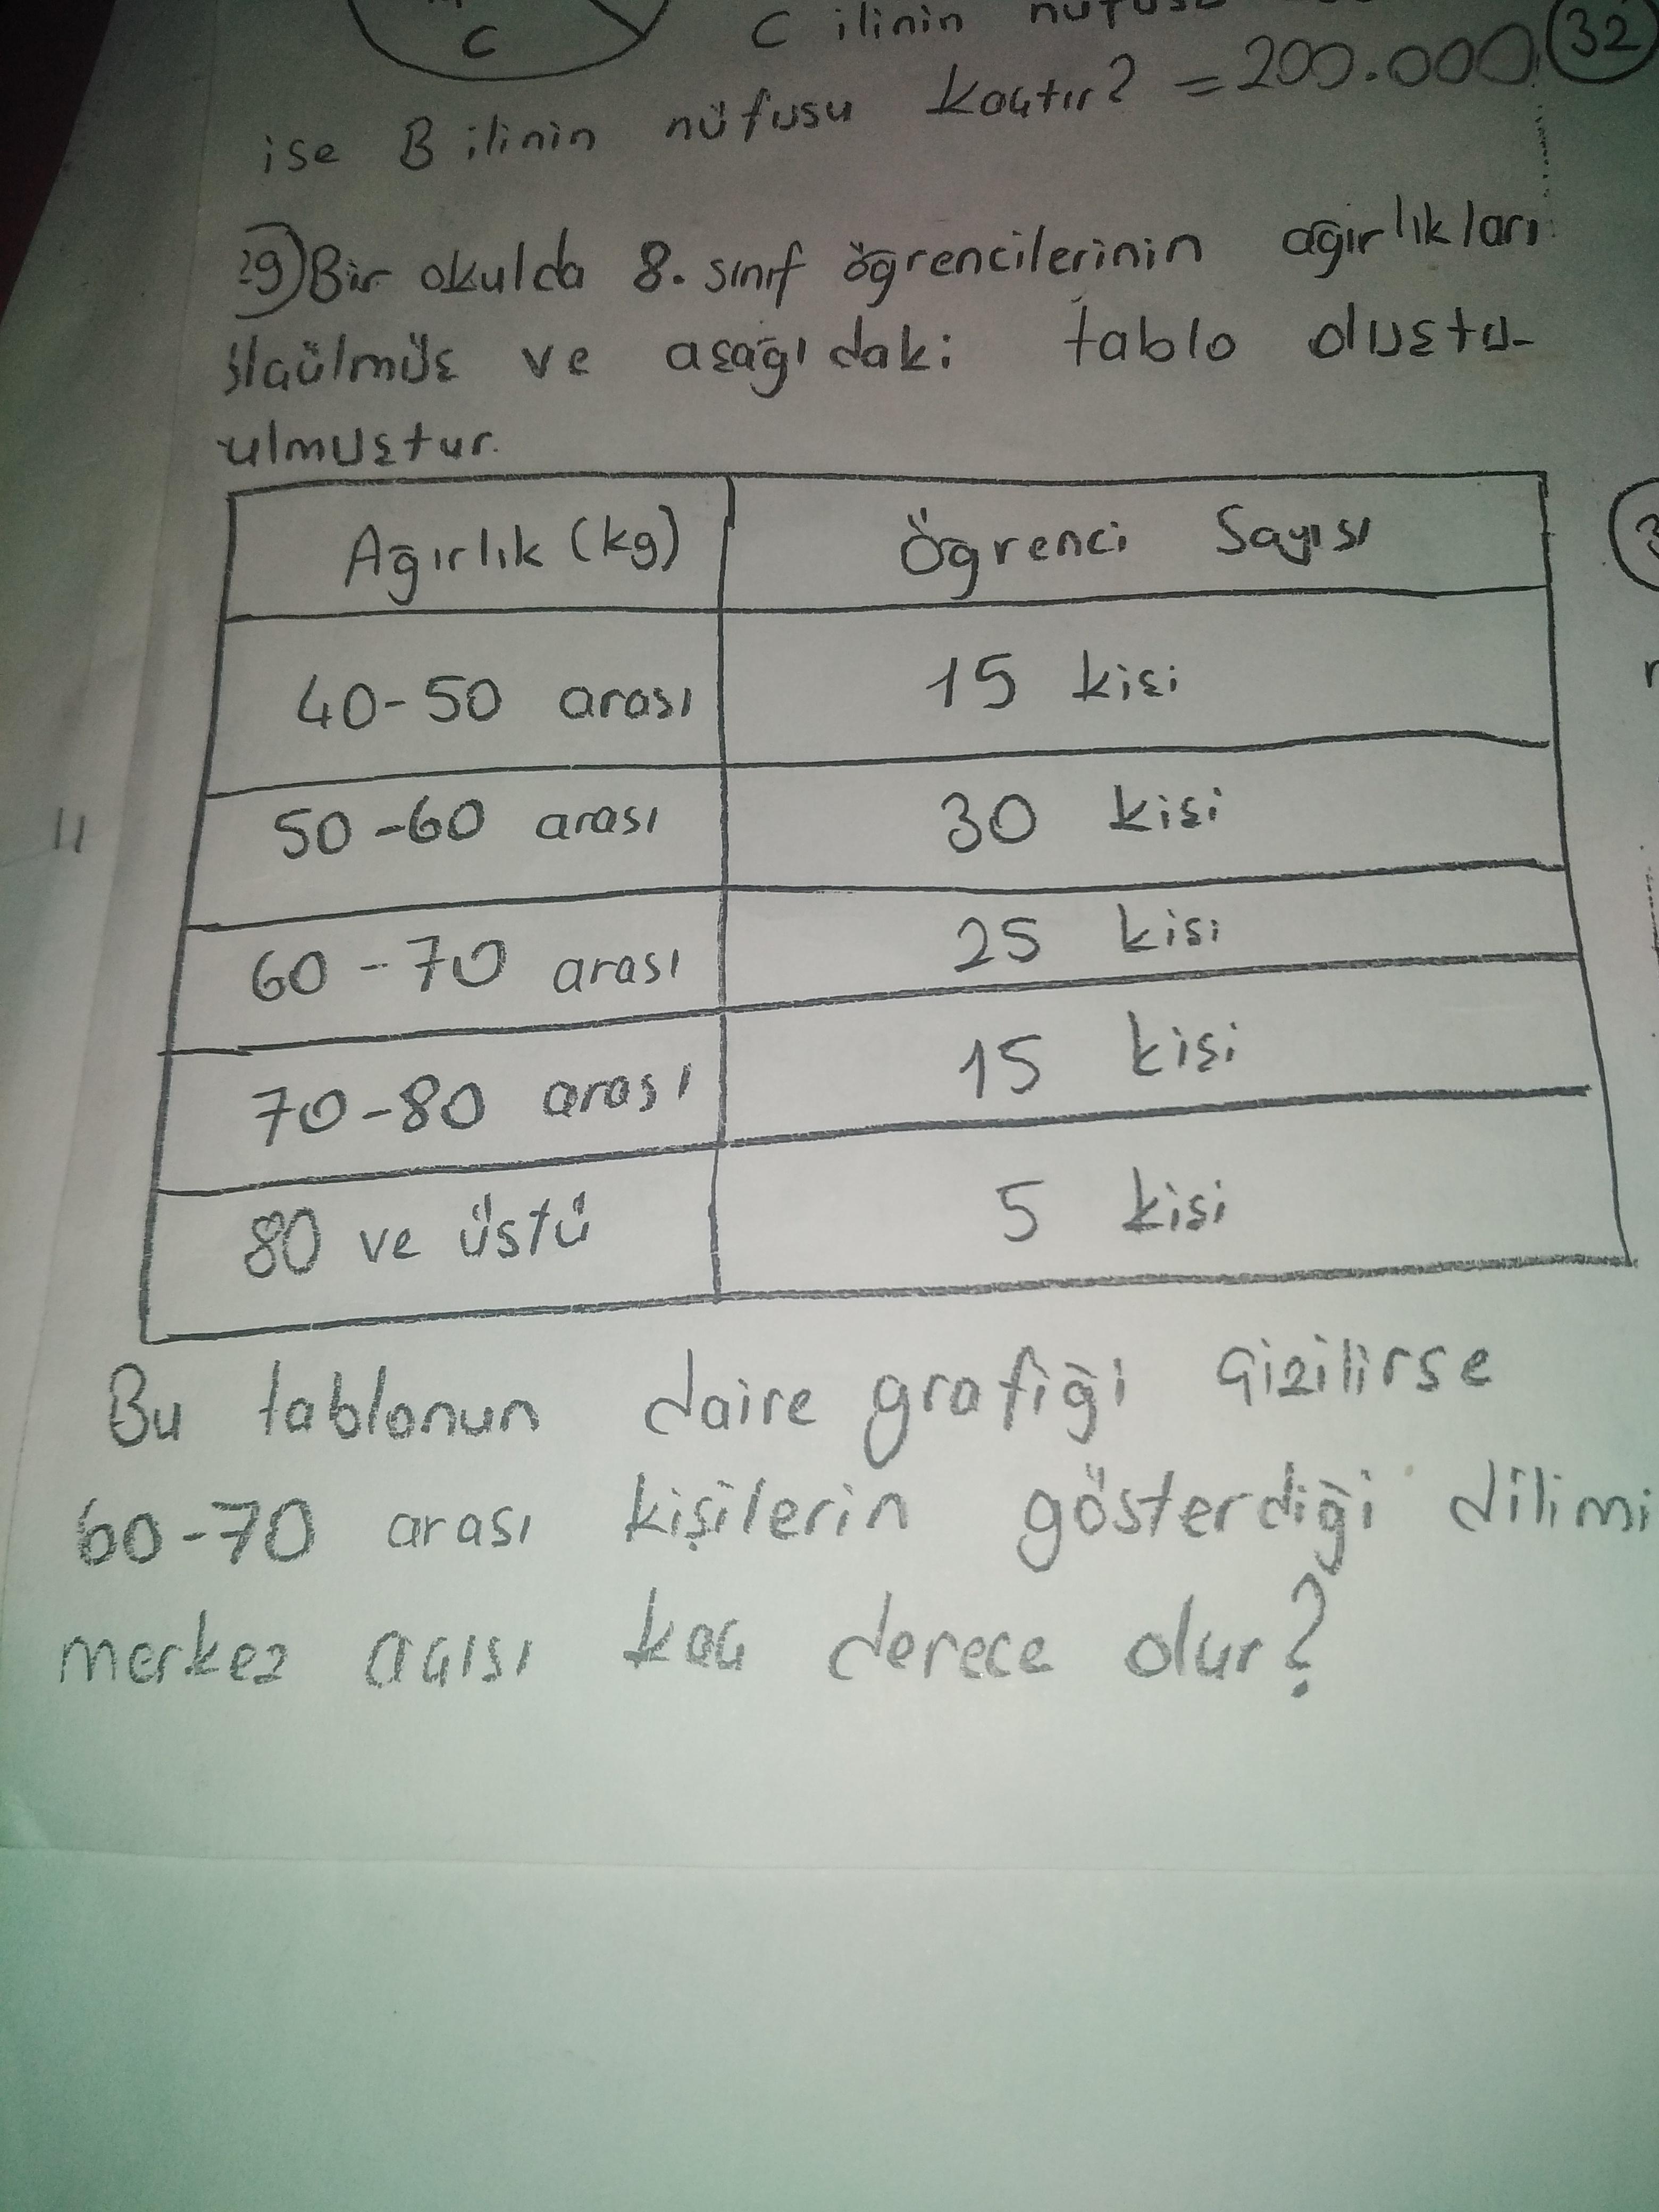 C
C ilinin nüfusu
32
ise B ilinin nüfusu kaçtır? = 200.000
29) Bir okulda 8. sınıf öğrencilerinin ağırlıkları
ölçülmüş ve aşağıdaki tablo oluştu-
rulmuştur.
Ağırlık (kg) Öğrenci Sayısı
40-50 arası 15 kişi
50-60 arası 30 kişi
60-70 arası 25 kişi
70-80 arası 15 kişi
80 ve üstü 5 kişi
Bu tablonun daire grafiği çizilirse
60-70 arası kişilerin gösterdiği dilimi
merkez açısı kaç derece olur?